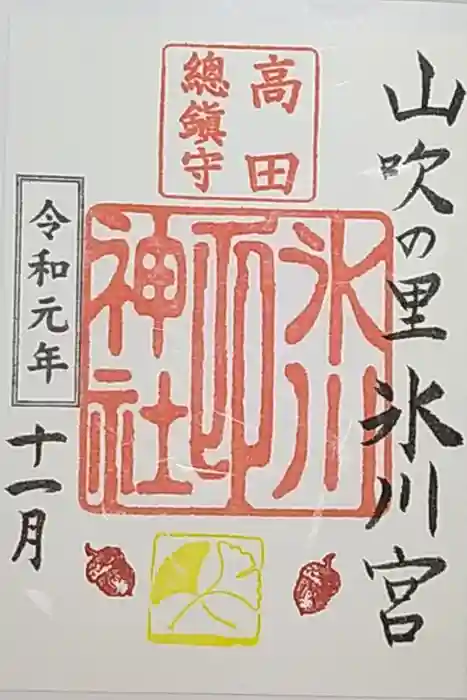 山吹の里 氷川宮
高田
總鎮守
氷川
神社
令和元年
十一月